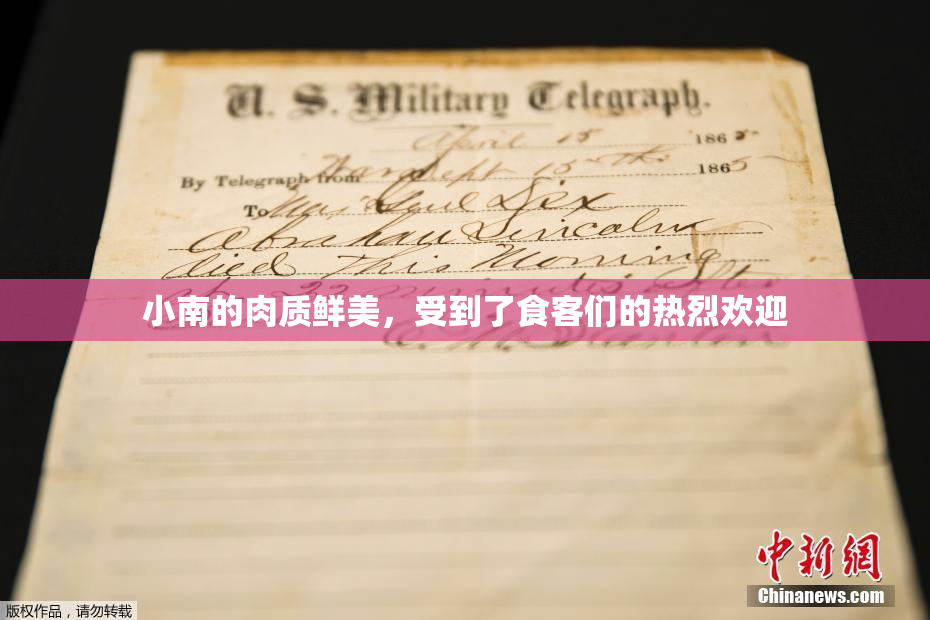 U. S. Military Telegraph.
April 15 1865
By Telegraph from War Dept 15th 1865
To Maj Genl Dix
Abraham Lincoln
died This Morning
at 22 minutes after
小南的肉质鲜美，受到了食客们的热烈欢迎
E. M. Stanton
中新网
Chinanews.com
版权作品，请勿转载